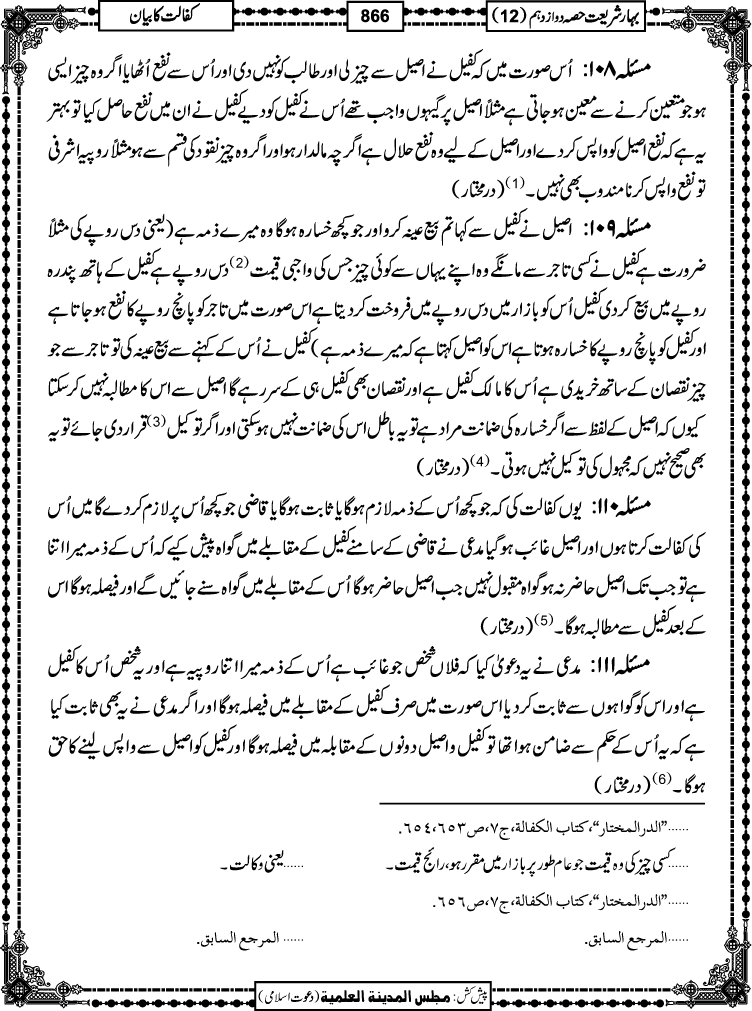 بہارِ شریعت حصہ دوازدہم (12)
866
کفالت کا بیان
مسئلہ ۱۰۸: اُس صورت میں کہ کفیل نے اصیل سے چیز لی اور طالب کو نہیں دی اور اُس سے نفع اُٹھایا اگر وہ چیز ایسی
ہو جو متعین کرنے سے معین ہو جاتی ہے مثلاً اصیل پر گیہوں واجب تھے اُس نے کفیل کو دیے کفیل نے ان میں نفع حاصل کیا تو بہتر
یہ ہے کہ نفع اصیل کو واپس کردے اور اصیل کے لیے وہ نفع حلال ہے اگرچہ مالدار ہو اور اگر وہ چیز نقود کی قسم سے ہو مثلاً روپیہ اشرفی
تو نفع واپس کرنا مندوب بھی نہیں۔(1) (درمختار)
مسئلہ ۱۰۹: اصیل نے کفیل سے کہا تم بیع عینہ کرو اور جو کچھ خسارہ ہوگا وہ میرے ذمہ ہے (یعنی دس روپے کی مثلاً
ضرورت ہے کفیل نے کسی تاجر سے مانگے وہ اپنے یہاں سے کوئی چیز جس کی واجبی قیمت(2) دس روپے ہے کفیل کے ہاتھ پندرہ
روپے میں بیع کر دی کفیل اُس کو بازار میں دس روپے میں فروخت کر دیتا ہے اس صورت میں تاجر کو پانچ روپے کا نفع ہو جاتا ہے
اور کفیل کو پانچ روپے کا خسارہ ہوتا ہے اس کو اصیل کہتا ہے کہ میرے ذمہ ہے) کفیل نے اُس کے کہنے سے بیع عینہ کی تو تاجر سے جو
چیز نقصان کے ساتھ خریدی ہے اُس کا مالک کفیل ہے اور نقصان بھی کفیل ہی کے سر رہے گا اصیل سے اس کا مطالبہ نہیں کرسکتا
کیوں کہ اصیل کے لفظ سے اگر خسارہ کی ضمانت مراد ہے تو یہ باطل اس کی ضمانت نہیں ہوسکتی اور اگر توکیل(3) قرار دی جائے تو یہ
بھی صحیح نہیں کہ مجہول کی توکیل نہیں ہوتی۔(4) (درمختار)
مسئلہ ۱۱۰: یوں کفالت کی کہ جو کچھ اُس کے ذمہ لازم ہوگا یا ثابت ہوگا یا قاضی جو کچھ اُس پر لازم کر دے گا میں اُس
کی کفالت کرتا ہوں اور اصیل غائب ہوگیا مدعی نے قاضی کے سامنے کفیل کے مقابلے میں گواہ پیش کیے کہ اُس کے ذمہ میرا اتنا
ہے تو جب تک اصیل حاضر نہ ہو گواہ مقبول نہیں جب اصیل حاضر ہوگا اُس کے مقابلے میں گواہ سنے جائیں گے اور فیصلہ ہوگا اس
کے بعد کفیل سے مطالبہ ہوگا۔(5) (درمختار)
مسئلہ ۱۱۱: مدعی نے یہ دعویٰ کیا کہ فلاں شخص جو غائب ہے اُس کے ذمہ میرا اتنا روپیہ ہے اور یہ شخص اُس کا کفیل
ہے اور اس کو گواہوں سے ثابت کر دیا اس صورت میں صرف کفیل کے مقابلے میں فیصلہ ہوگا اور اگر مدعی نے یہ بھی ثابت کیا
ہے کہ یہ اُس کے حکم سے ضامن ہوا تھا تو کفیل و اصیل دونوں کے مقابلہ میں فیصلہ ہوگا اور کفیل کو اصیل سے واپس لینے کا حق
ہوگا۔(6) (درمختار)
......”الدرالمختار“، کتاب الکفالۃ، ج۷، ص۶۵۳، ۶۵٤.
......کسی چیز کی وہ قیمت جو عام طور پر بازار میں مقرر ہو، رائج قیمت۔ ......یعنی وکالت۔
......”الدرالمختار“، کتاب الکفالۃ، ج۷، ص۶۵۶.
......المرجع السابق. ......المرجع السابق.
پیش کش: مجلس المدینۃ العلمیۃ (دعوت اسلامی)